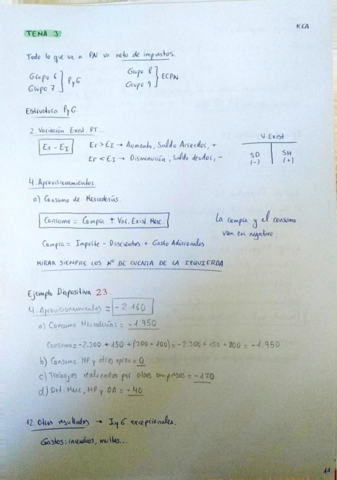 TEMA 3
Todo lo que va a PN va neto de impuestos.
Grupo 6
Grupo 7
PyG
Grupo 8
Grupo 9
ECPN
Estructura PyG.
2. Variación Exist. PT...
EF - EI
EF > EI → Aumento, Saldo Acreedor, +
EF < EI → Disminución, Saldo deudor, -
V. Exist
SD
(-)
SH
(+)
4. Aprovisionamientos
a) Consumo de Mercaderías.
Consumo = Compra ± Var. Exist. Merc.
La compra y el consumo
van en negativo
Compra = Importe - Descuentos + Gasto Adicionales
MIRAR SIEMPRE LOS Nº DE CUENTA DE LA IZQUIERDA
Ejemplo Diapositiva 23.
4. Aprovisionamientos = -2.160
a) Consumo Mercaderías = -1.950
Consumo = -2.300 + 150 + (200 + 100) = -2.300 + 150 + 200 = -1.950
b) Consumo MP y otros aprov = 0
c) Trabajos realizados por otras empresas = -170
d) Det. Merc, MP y OA = -40
12. Otros resultados → I y G excepcionales.
Gastos: incendios, multas...